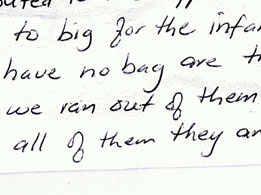 to big for the
have no bag are
we ran out of them
all of them they